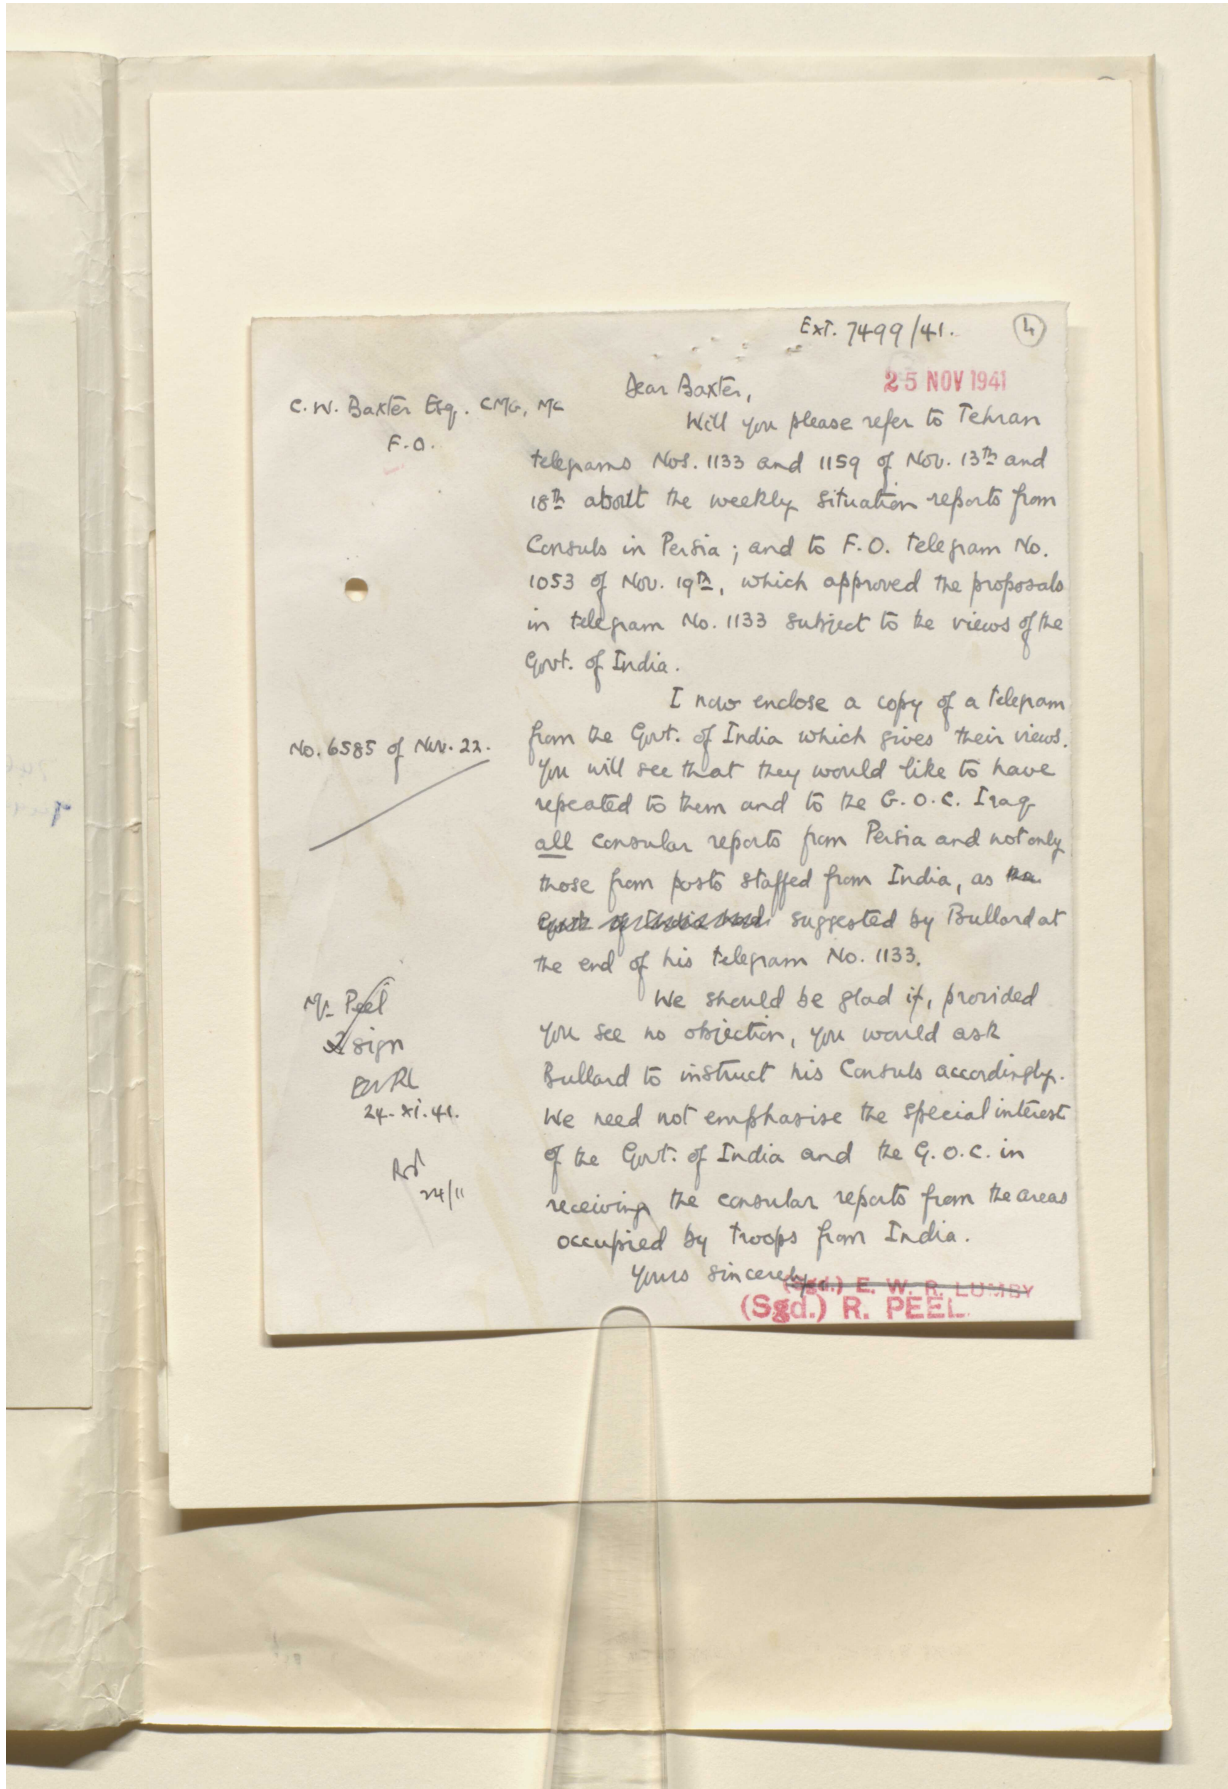 Ext. 7499/41.
4
25 NOV 1941
C. W. Baxter Esq. CMG, MC
F.O.
Dear Baxter,
Will you please refer to Tehran
telegrams Nos. 1133 and 1159 of Nov. 13th and
18th about the weekly situation reports from
Consuls in Persia; and to F.O. telegram No.
1053 of Nov. 19th, which approved the proposals
in telegram No. 1133 subject to the views of the
Govt. of India.
I now enclose a copy of a telegram
No. 6585 of Nov. 22.
from the Govt. of India which gives their views.
You will see that they would like to have
repeated to them and to the G.O.C. Iraq
all consular reports from Persia and not only
those from posts staffed from India, as the
Govt. of India had suggested by Bullard at
the end of his telegram No. 1133.
We should be glad if, provided
you see no objection, you would ask
Bullard to instruct his Consuls accordingly.
We need not emphasise the special interest
of the Govt. of India and the G.O.C. in
receiving the consular reports from the areas
occupied by troops from India.
Yours sincerely,
(Sgd.) E. W. R. LUMBY
(Sgd.) R. PEEL.
Mr Peel
To sign
EWRL
24.xi.41.
24/11